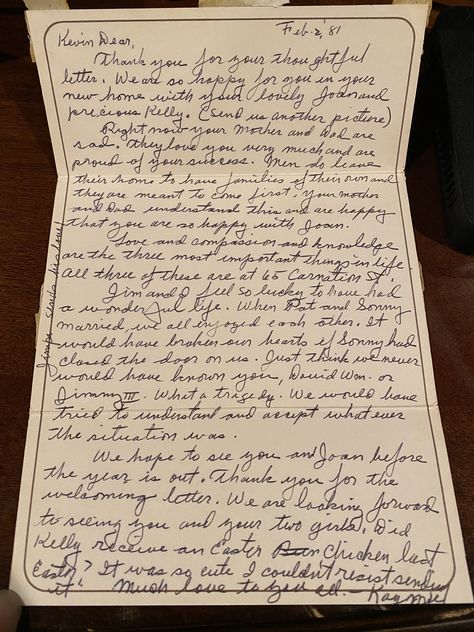 Feb. 2, 81
Kevin Dear,
Thank you for your thoughtful
letter. We are so happy for you in your
new home with your lovely Joan and
precious Kelly. (Send us another picture)
Right now your Mother and Dad are
sad. They love you very much and are
proud of your success. Men do leave
their home to have families of their own and
they are meant to come first. Your mother
and Dad understand this and are happy
that you are so happy with Joan.
Love and compassion and knowledge
are the three most important things in life.
All three of these are at 65 Carnation St.
Jim and I feel so lucky to have had
a wonderful life. When Pat and Sonny
married, we all enjoyed each other. It
would have broken our hearts if Sonny had
closed the door on us. Just think we never
would have known you, David Wm. or
Jimmy III. What a tragedy. We would have
tried to understand and accept whatever
the situation was.
We hope to see you and Joan before
the year is out. Thank you for the
welcoming letter. We are looking forward
to seeing you and your two girls. Did
Kelly receive an Easter chicken last
Easter? It was so cute I couldn't resist sending
it. Much love to you all. Kay
Jimpa sends his love!